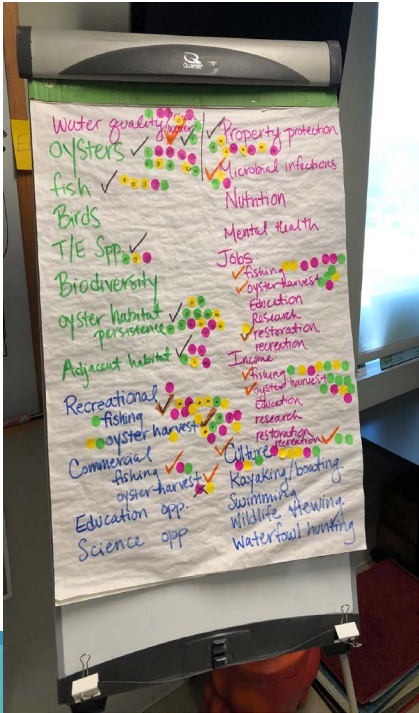 Q
QUARTET
E
Water quality/water
oysters
fish
Birds
T/E Spp.
Biodiversity
oyster habitat
persistence
Adjacent habitat
Recreational
fishing
oyster harvest
Commercial
fishing
oyster harvest
Education opp.
Science opp
Property protection
Microbial infections
Nutrition
Mental health
Jobs
fishing
oyster harvest
Education
Research
restoration
recreation
Income
fishing
oyster harvest
Education
research
restoration
recreation
Culture
Kayaking/boating
Swimming
Wildlife viewing
Waterfowl hunting